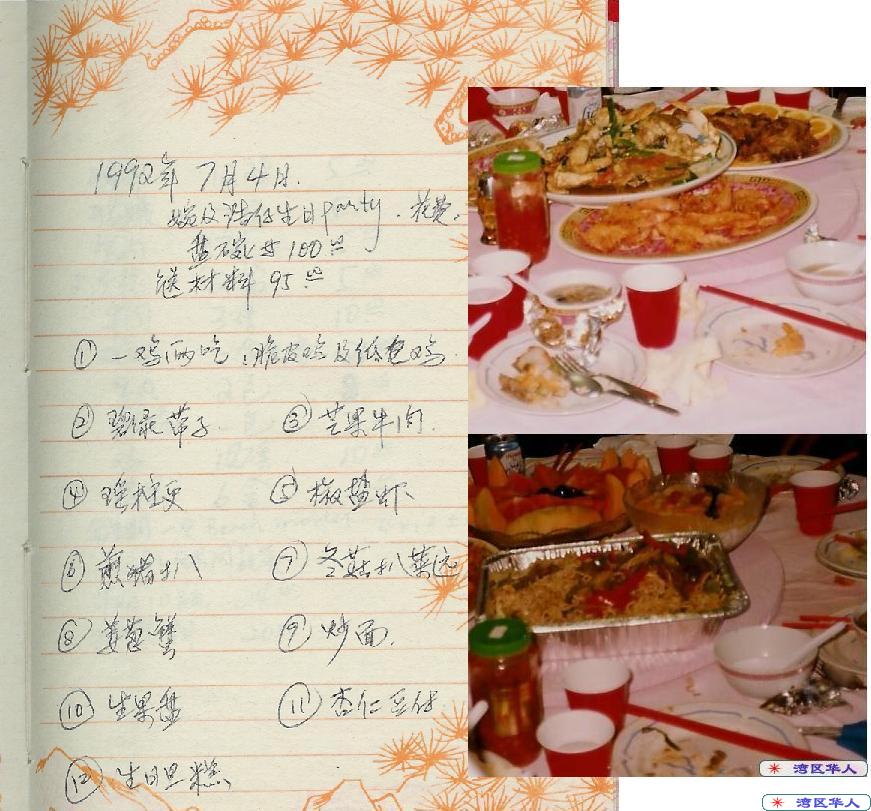 1992年7月4日.
及浩仔生日party. 花费.
盘碗 100.00
材料 95.00
① 一鸡两吃:脆皮鸡及纸包鸡.
② 碧绿带子. ③ 芒果牛肉.
④ 瑶柱羹 ⑤ 椒盐虾
⑥ 煎猪扒 ⑦ 冬菇扒菜远
⑧ 姜葱蟹 ⑨ 炒面.
⑩ 生果盘 ⑪ 杏仁豆付
⑫ 生日旦糕
湾区华人
湾区华人